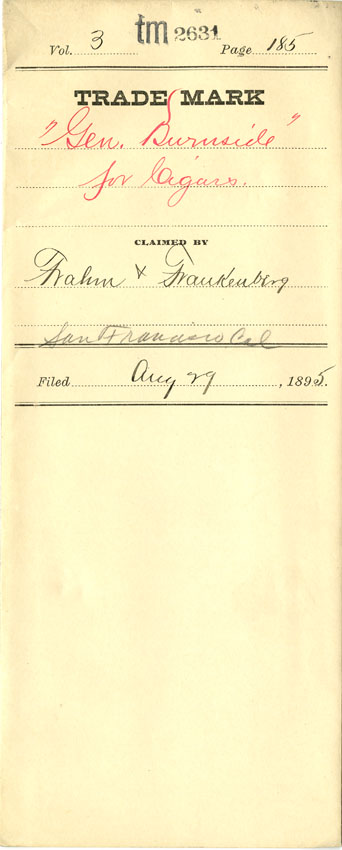 tm 2631
Vol. 3 Page 185
TRADE MARK
"Gen. Burnside"
for Cigars.
CLAIMED BY
Frahm & Frankenberg
San Francisco Cal
Filed Aug 29, 1895.